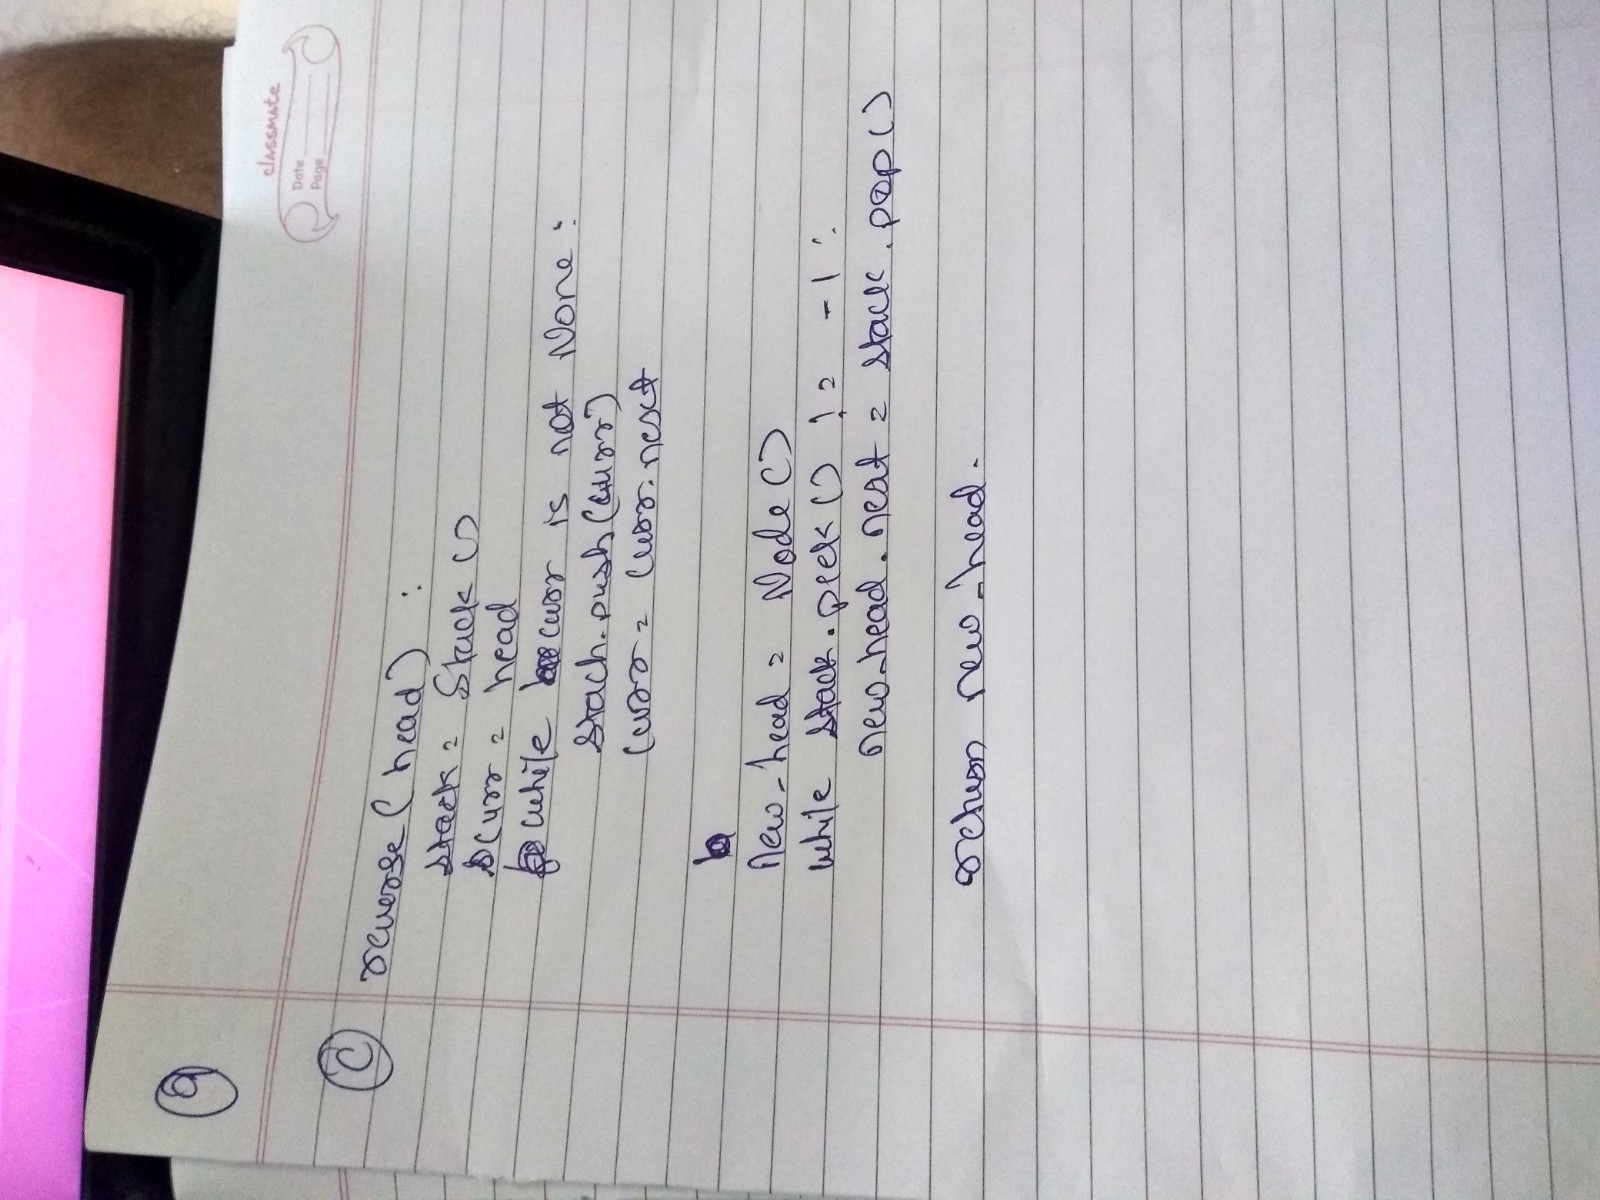 classmate
Date
Page
9
C reverse(head):
stack = Stack()
curr = head
while curr is not None:
stach.push(curr)
curr = curr.next
new_head = Node()
while stack.peek() != -1:
new_head.next = stack.pop()
return new_head.